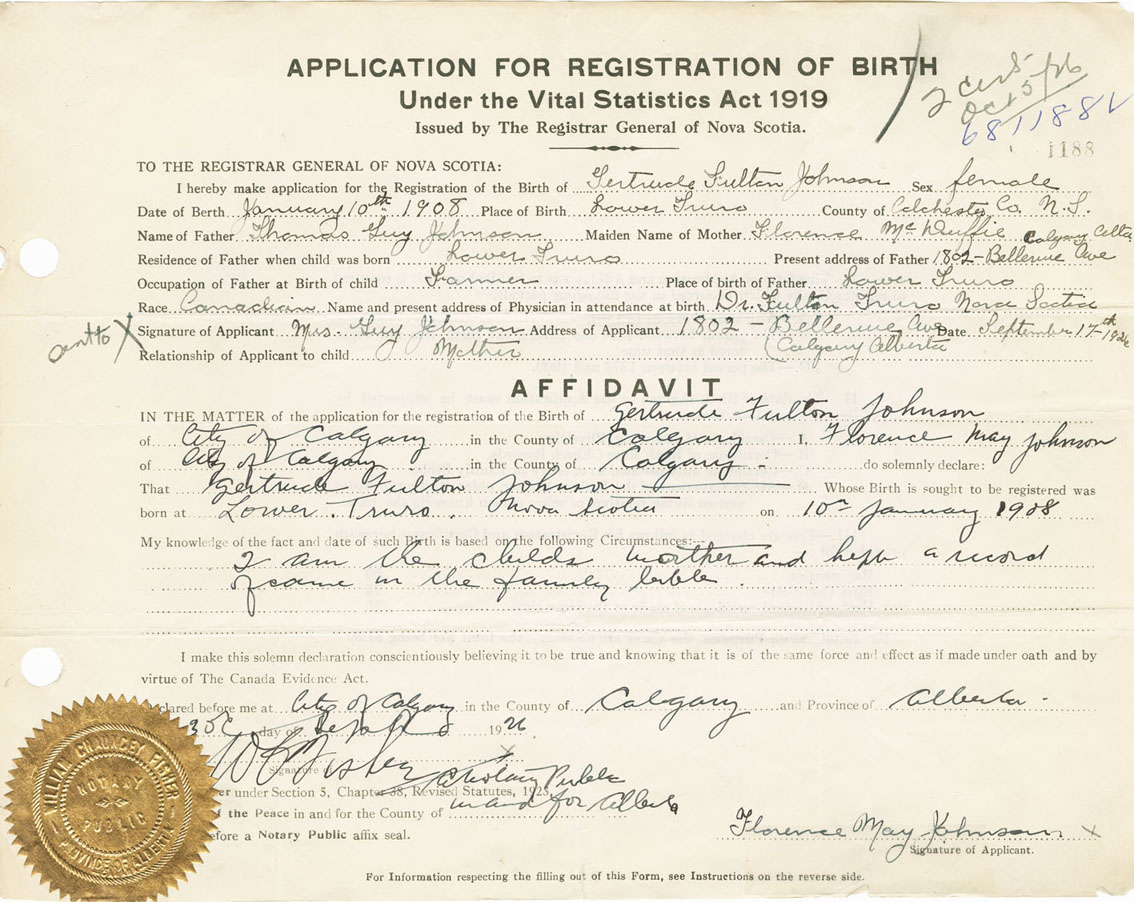 APPLICATION FOR REGISTRATION OF BIRTH
Under the Vital Statistics Act 1919
Issued by The Registrar General of Nova Scotia.
2 certs
Oct 5/26
681188 ✓
1188
TO THE REGISTRAR GENERAL OF NOVA SCOTIA:
I hereby make application for the Registration of the Birth of Gertrude Fulton Johnson Sex female
Date of Berth January 10th 1908 Place of Birth Lower Truro County of Colchester Co. N.S.
Name of Father Thomas Guy Johnson Maiden Name of Mother Florence McDuffie Calgary Alta
Residence of Father when child was born Lower Truro Present address of Father 1802 - Bellevue Ave
Occupation of Father at Birth of child Farmer Place of birth of Father Lower Truro
Race Canadian Name and present address of Physician in attendance at birth Dr. Fulton Truro Nova Scotia
sent to X Signature of Applicant Mrs. Guy Johnson Address of Applicant 1802 - Bellevue Ave Date September 17th 1926
Relationship of Applicant to child Mother (Calgary Alberta
AFFIDAVIT
IN THE MATTER of the application for the registration of the Birth of Gertrude Fulton Johnson
of City of Calgary in the County of Calgary I, Florence May Johnson
of City of Calgary in the County of Calgary - do solemnly declare:
That Gertrude Fulton Johnson Whose Birth is sought to be registered was
born at Lower Truro Nova Scotia on 10th January 1908
My knowledge of the fact and date of such Birth is based on the following Circumstances:
I am the childs mother and kept a record
of same in the family bible.
I make this solemn declaration conscientiously believing it to be true and knowing that it is of the same force and effect as if made under oath and by
virtue of The Canada Evidence Act.
Declared before me at City of Calgary in the County of Calgary and Province of Alberta.
day of Sept 1926
W C Fisher X
Signature
a Notary Public
er under Section 5, Chapter 38, Revised Statutes, 1923
in and for Alberta
f the Peace in and for the County of
efore a Notary Public affix seal.
Florence May Johnson X
Signature of Applicant.
WILLIAM CHAUNCEY FISHER
NOTARY
PUBLIC
PROVINCE OF ALBERTA
For Information respecting the filling out of this Form, see Instructions on the reverse side.